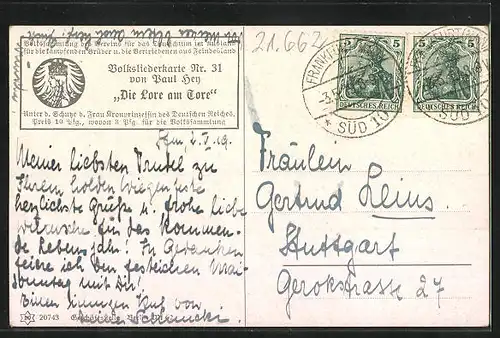 Volkssammlung des Vereins für das Deutschtum im Ausland
für die kämpfenden Brüder u. die Vertriebenen aus Feindesland
Volksliederkarte Nr. 31
von Paul Hey
„Die Lore am Tore"
Unter d. Schutze d. Frau Kronprinzessin des Deutschen Reiches.
Preis 10 Pfg., wovon 3 Pfg. für die Volkssammlung
21.662
5 5
DEUTSCHES REICH
DEUTSCHES REICH
FRANKFURT
* SÜD 10
SÜD 10
2. V. 19.
Meiner liebsten Trudel zu
Ihrem holden Wiegenfeste
herzlichste Grüße u. frohe liebe
Wünsche für das kommen-
de Lebensjahr! In Gedanken
feiere ich den festlichen Mai-
Sonntag mit Dir!
Einen innigen Kuß von
Fräulein
Gertrud Leins
Stuttgart
Gerokstrasse 27
20743